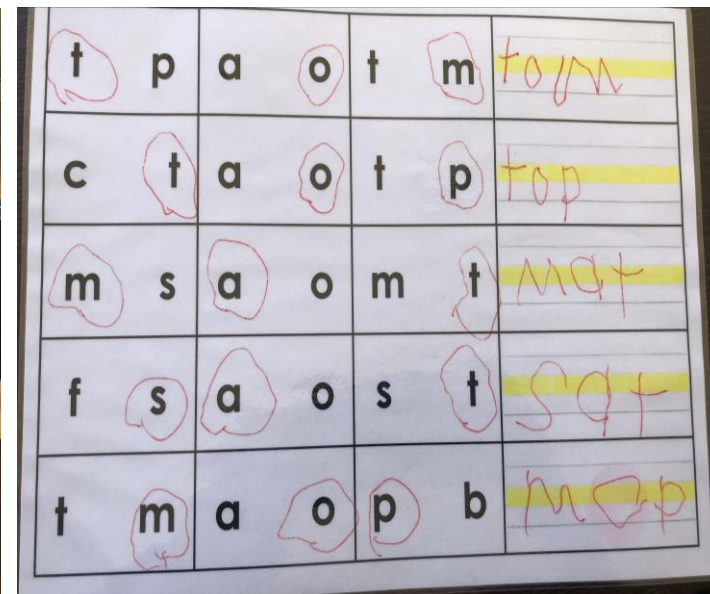 t p a o t m tom
c t a o t p top
m s a o m t mat
f s a o s t sat
t m a o p b mop